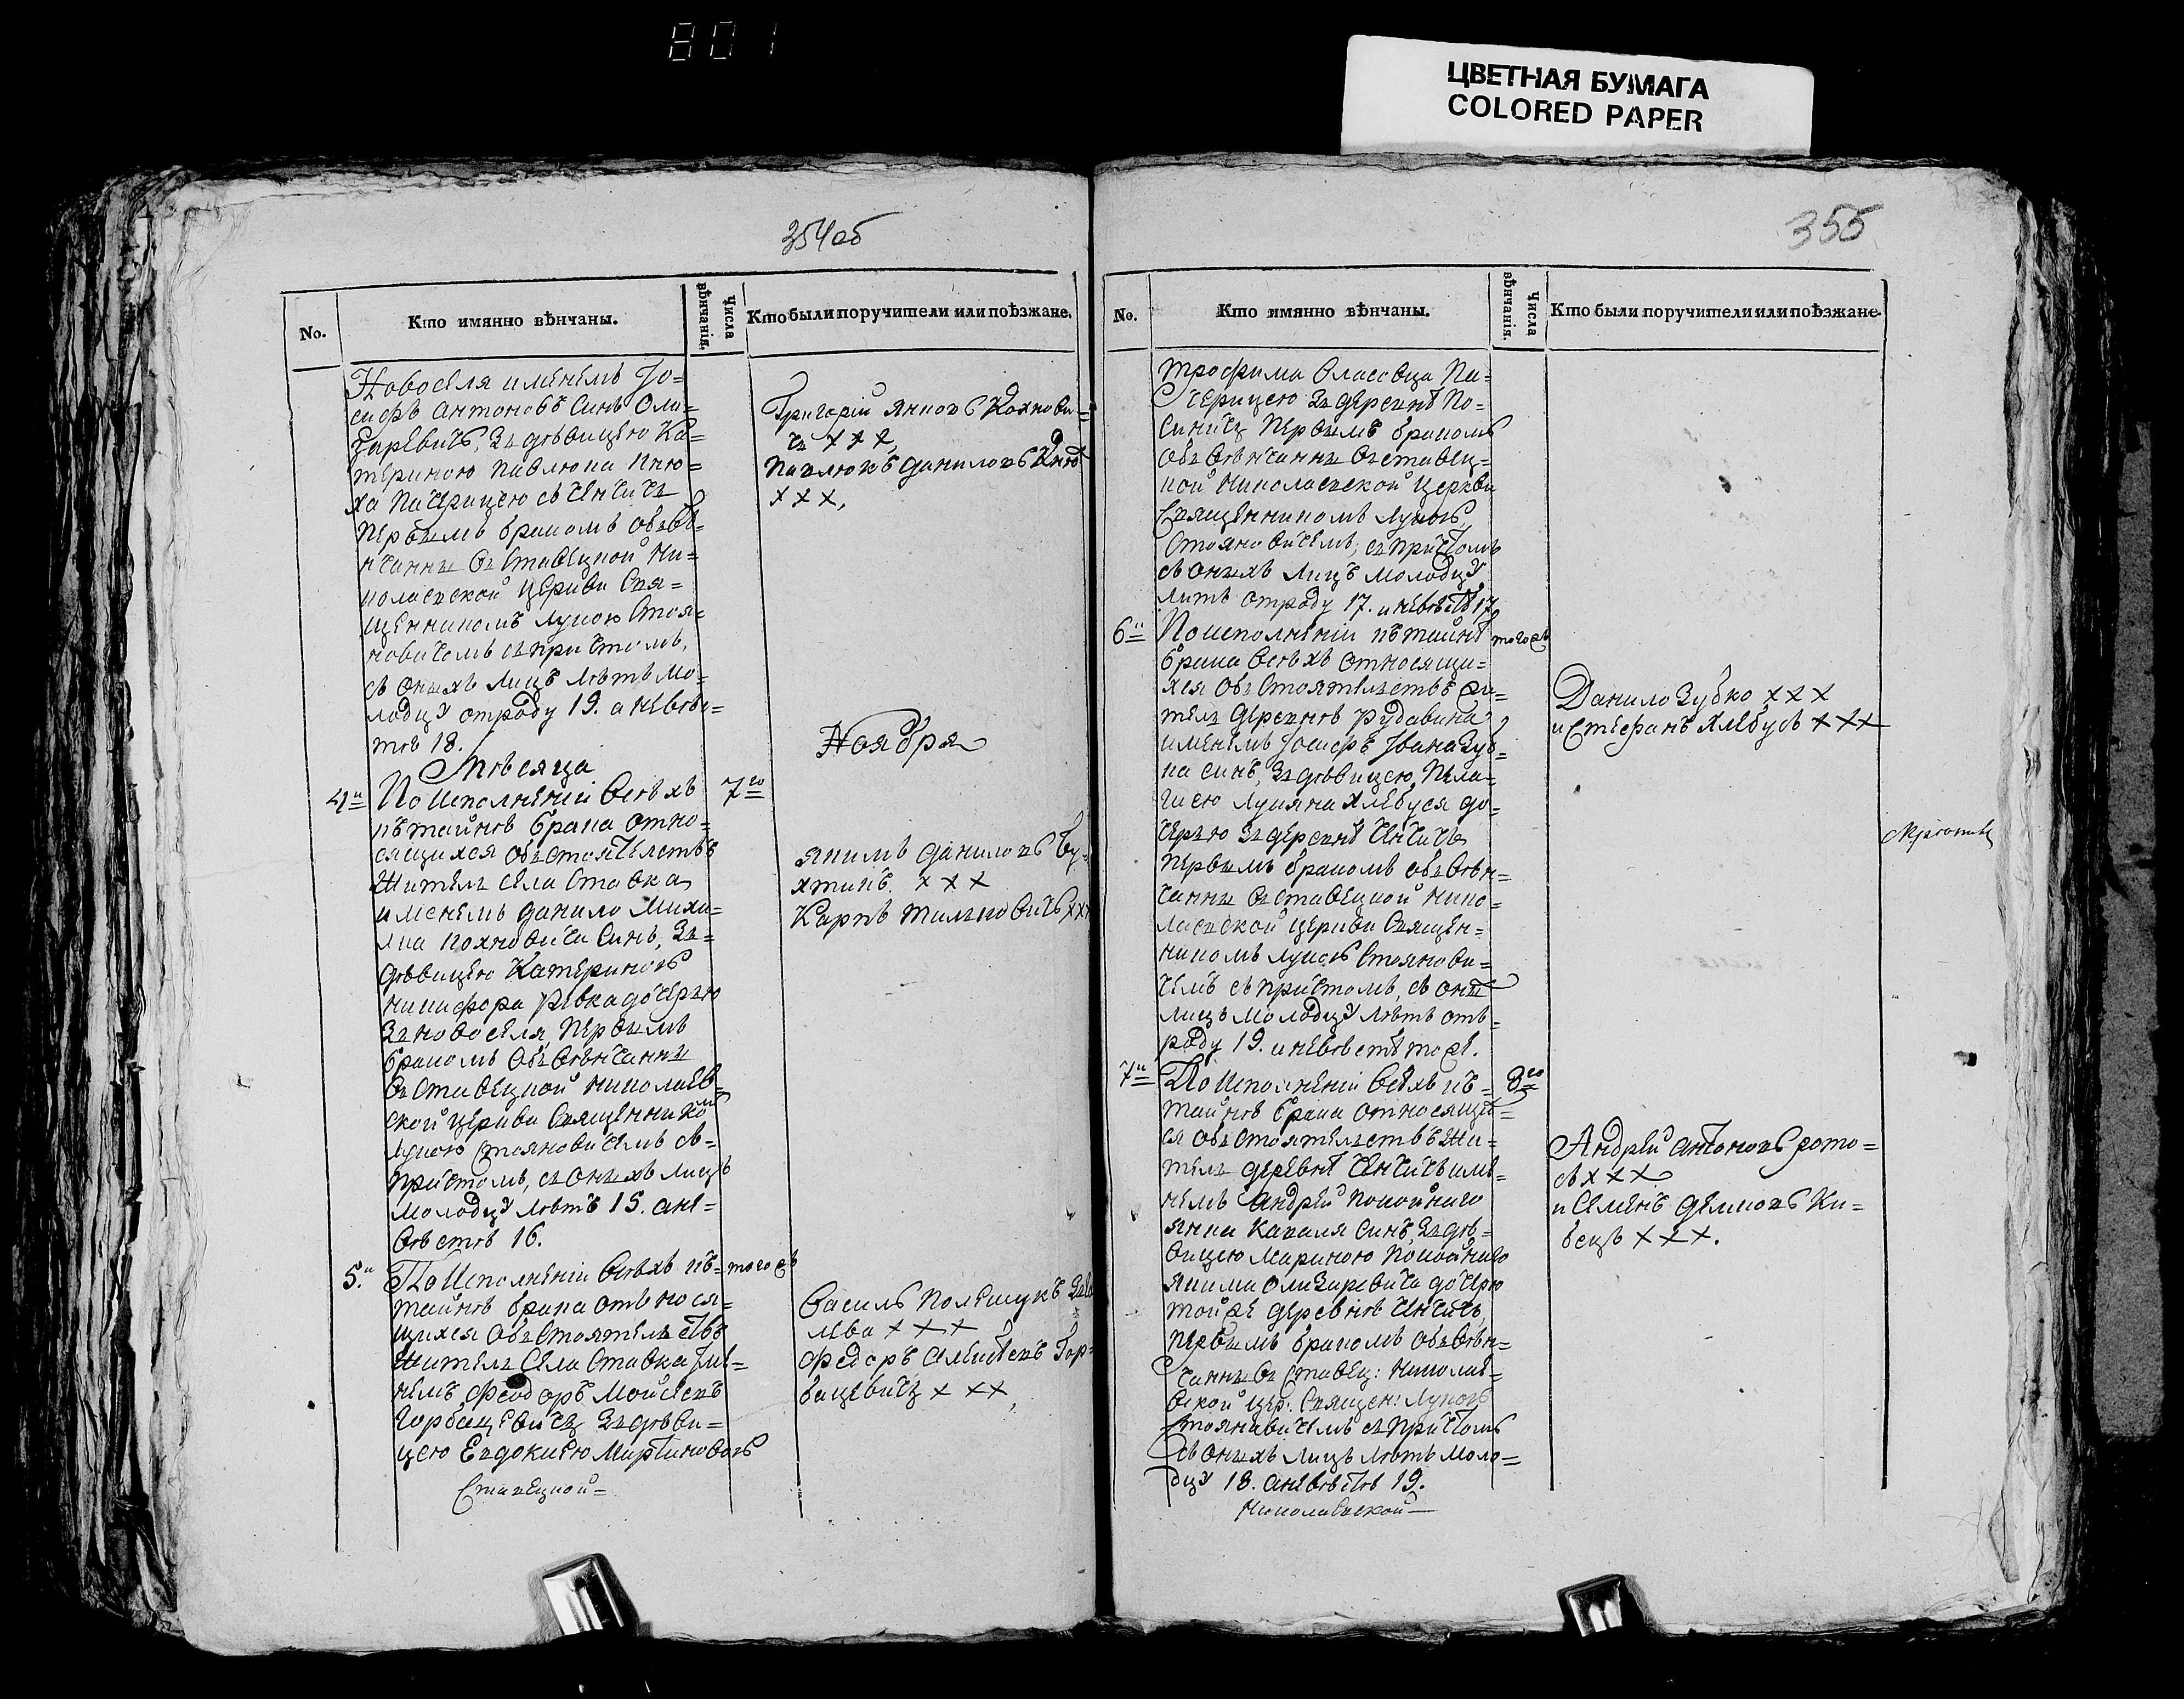 801
ЦВЕТНАЯ БУМАГА
COLORED PAPER
354об
No.
Кто имянно вѣнчаны.
Числа вѣнчанія.
Кто были поручители или поѣзжане.
Новоселя именемъ Іо=
сифъ Антоновъ Синъ Оли=
заревичъ, Зъ девицею Ка=
териною Павлюка Кню=
ха Пасерицею съ Ченчичъ
Первымъ бракомъ обвѣ=
нчанны въ Ставецкой Ни=
колаевской Церкви Свя=
щенникомъ Лукою Стоя=
новичемъ съ причтомъ,
съ оныхъ лицъ лѣтъ мо=
лодцу отроду 19. а невѣс=
тѣ 18.
Григорій Янковъ Кохнови=
чъ ххх,
Павлюкъ Даниловъ Кнюх
ххх,
Мѣсяца
Ноября
4й
По исполненіи всѣхъ
7го
къ тайнѣ брака отно=
сящихся обстоятелствъ
житель села Ставка
именемъ Данило Миха=
лка Кохновича Синъ, Зъ=
дѣвицею Катериною
Никифора Ревка дочерью
Зъ новоселя, Первымъ
бракомъ обвѣнчанны
въ Ставецкой Николаев=
ской церкви Священником
Лукою Стояновичемъ съ=
причтомъ, съ оныхъ лицъ
молодцу лѣтъ 15. а не=
вѣстѣ 16.
Якимъ Даниловъ Бу=
хтикъ. ххх
Карпъ Тилковичъ ххх
5.й
По исполненіи всѣхъ къ=
тогожъ
тайнѣ брака относя=
щихся обстоятелствъ
житель села Ставка Име=
немъ Феодоръ Мойсеевъ
Горбацевичъ Зъ дѣви=
цею Евдокиею Мартиновою
Ставецкой=
Василь Полещукъ
ххх
Федоръ Алексеевъ Гор=
бацевичъ ххх,
355
No.
Кто имянно вѣнчаны.
Числа вѣнчанія.
Кто были поручители или поѣзжане.
Трофима Власовца Па=
счерицею Зъ деревнѣ По=
синичъ Первымъ бракомъ
обвѣнчанны въ Ставец=
кой Николаевской Церкви
Священникомъ Лукою
Стояновичемъ, съ причтомъ
съ оныхъ лицъ молодцу
литъ отроду 17. и невѣстѣ 17,
6й
По исполненіи къ тайнѣ
тогожъ
брака всѣхъ относящи=
хся обстоятелствъ жи=
тель деревнѣ Рудавина,
именемъ Іосифъ Івана Зуб=
ка синъ, Зъ дѣвицею, Пела=
гиею Лукяна Хлебуся до=
черью Зъ деревнѣ Ченчичъ
Первымъ бракомъ обвѣн=
чанны въ Ставецкой Нико=
лаевской церкви Священ=
никомъ Лукою Стоянови=
чемъ съ причтомъ, съ оны
лицъ молодцу лѣтъ отъ=
роду 19. и невѣстѣ тоже.
Данило Зубко ххх
и Стефанъ Хлебусъ ххх
7й
По исполненіи всѣхъ къ=
8го
тайнѣ брака относящи=
ся обстоятелствъ Жи=
тель деревнѣ Ченчичъ име=
немъ Андрей Покойнаго
Янка Каваля Синъ, Зъ дѣ=
вицею Мариною Покойнаго
Якима Олизаревича дочерю
тойже деревнѣ Ченчичъ,
Первымъ бракомъ обвѣн=
чанны въ Ставец: Николае=
вской цер: Священ: Лукою
Стояновичемъ съ причтомъ
съ оныхъ лицъ лѣтъ моло=
дцу 18. а невѣстѣ 19.
Николаевской=
Андрей Антоновъ рото=
съ ххх
и Семенъ Демковъ Ки=
бецъ ххх.